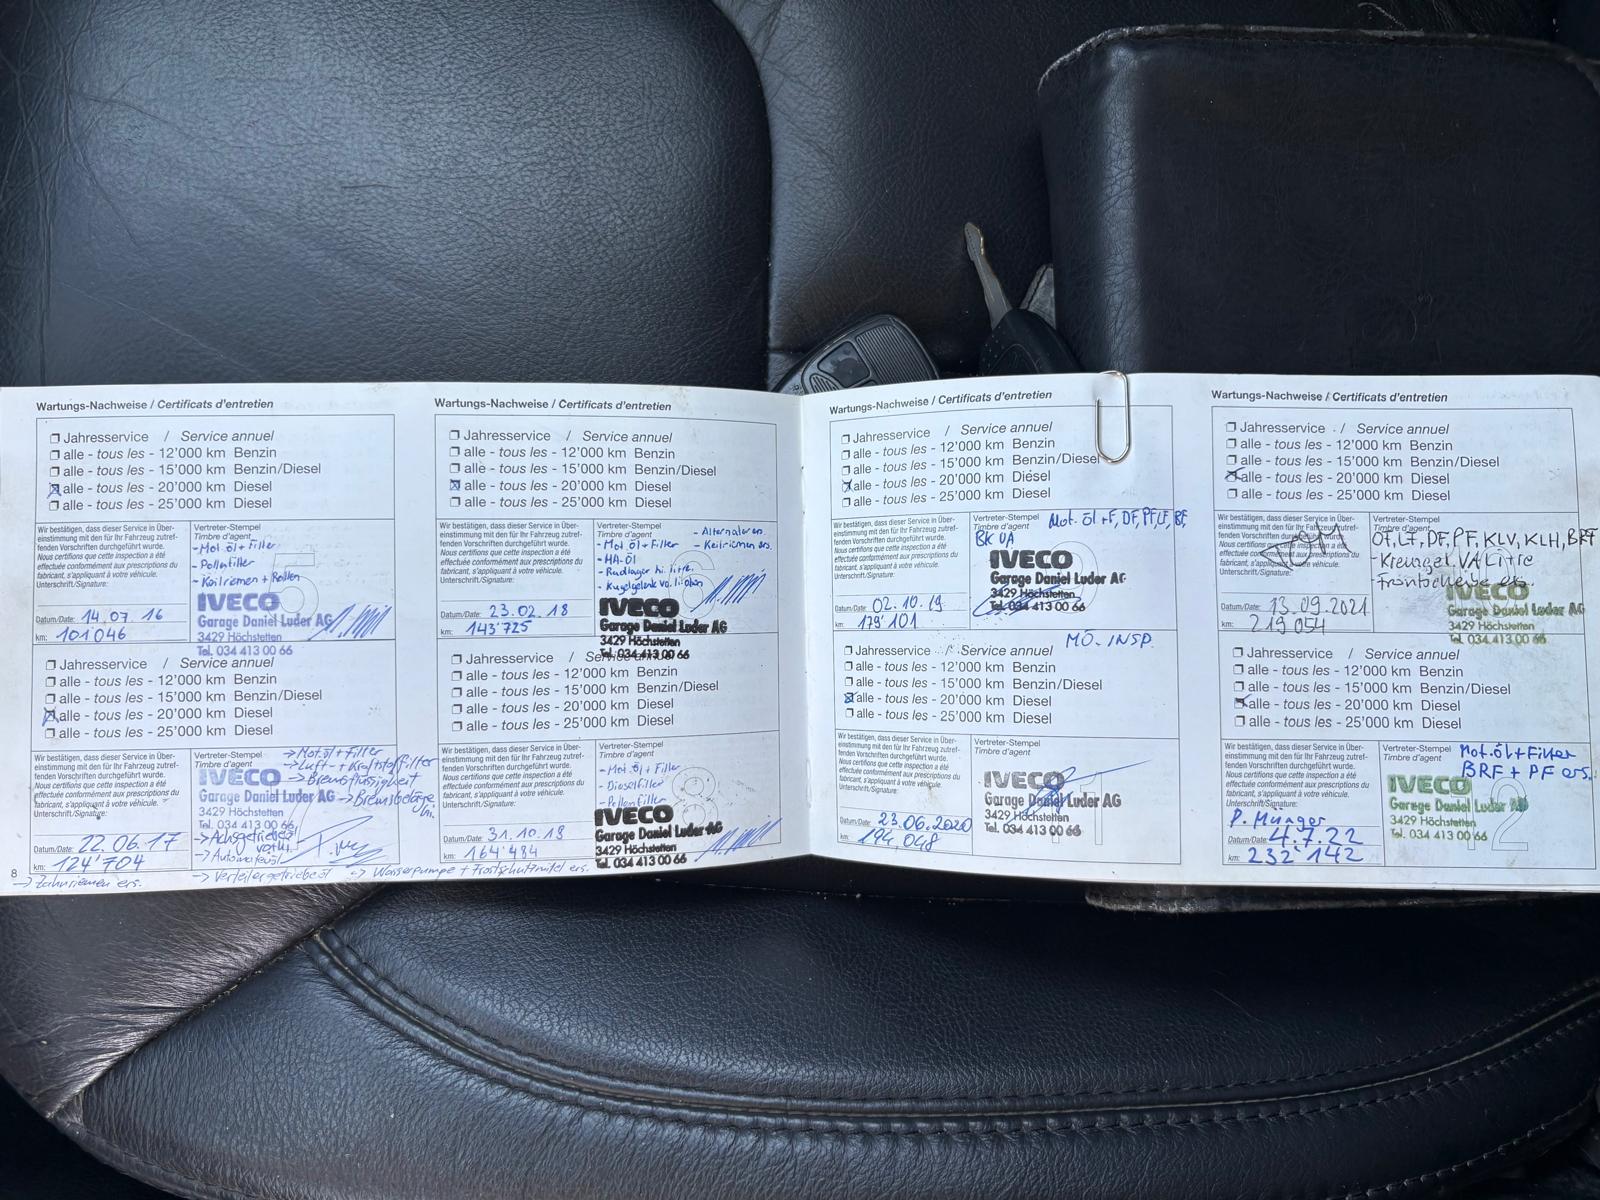 Wartungs-Nachweise / Certificats d'entretien
Jahresservice / Service annuel
alle - tous les - 12'000 km Benzin
alle - tous les - 15'000 km Benzin/Diesel
alle - tous les - 20'000 km Diesel
alle - tous les - 25'000 km Diesel
Wir bestätigen, dass dieser Service in Über-
einstimmung mit den für Ihr Fahrzeug zutref-
fenden Vorschriften durchgeführt wurde.
Nous certifions que cette inspection a été
effectuée conformément aux prescriptions du
fabricant, s'appliquant à votre véhicule.
Unterschrift/Signature:
Vertreter-Stempel
Timbre d'agent
- Mot.öl + Filter
- Pollenfilter
- Keilriemen + Rollen
5
IVECO
Garage Daniel Luder AG
3429 Höchstetten
Tel. 034 413 00 66
Datum/Date: 14.07 16
km: 101046
Jahresservice / Service annuel
alle - tous les - 12'000 km Benzin
alle - tous les - 15'000 km Benzin/Diesel
alle - tous les - 20'000 km Diesel
alle - tous les - 25'000 km Diesel
Wir bestätigen, dass dieser Service in Über-
einstimmung mit den für Ihr Fahrzeug zutref-
fenden Vorschriften durchgeführt wurde.
Nous certifions que cette inspection a été
effectuée conformément aux prescriptions du
fabricant, s'appliquant à votre véhicule.
Unterschrift/Signature:
Vertreter-Stempel
Timbre d'agent
-> Mot.öl + Filter
-> Luft- + Kraftstofffilter
-> Bremsflüssigkeit
-> Bremsbeläge
IVECO
Garage Daniel Luder AG
3429 Höchstetten
Tel. 034 413 00 66
-> Automatenöl
Datum/Date: 22.06.17
km: 124'704
8
-> Zahnriemen ers.
-> Verteilergetriebeöl
-> Wasserpumpe + Frostschutzmittel ers.
Wartungs-Nachweise / Certificats d'entretien
Jahresservice / Service annuel
alle - tous les - 12'000 km Benzin
alle - tous les - 15'000 km Benzin/Diesel
alle - tous les - 20'000 km Diesel
alle - tous les - 25'000 km Diesel
Wir bestätigen, dass dieser Service in Über-
einstimmung mit den für Ihr Fahrzeug zutref-
fenden Vorschriften durchgeführt wurde.
Nous certifions que cette inspection a été
effectuée conformément aux prescriptions du
fabricant, s'appliquant à votre véhicule.
Unterschrift/Signature:
Vertreter-Stempel
Timbre d'agent
- Alternator ers.
- Keilriemen ers.
- Mot.öl + Filter
- HA-Öl
- Radlager hi. li + re.
- Kugelgelenk vo. li oben
IVECO
Garage Daniel Luder AG
3429 Höchstetten
Tel. 034 413 00 66
Datum/Date: 23.02.18
km: 143'725
Jahresservice / Service annuel
alle - tous les - 12'000 km Benzin
alle - tous les - 15'000 km Benzin/Diesel
alle - tous les - 20'000 km Diesel
alle - tous les - 25'000 km Diesel
Wir bestätigen, dass dieser Service in Über-
einstimmung mit den für Ihr Fahrzeug zutref-
fenden Vorschriften durchgeführt wurde.
Nous certifions que cette inspection a été
effectuée conformément aux prescriptions du
fabricant, s'appliquant à votre véhicule.
Unterschrift/Signature:
Vertreter-Stempel
Timbre d'agent
- Mot.öl + Filter
- Dieselfilter
- Pollenfilter
8
IVECO
Garage Daniel Luder AG
3429 Höchstetten
Tel. 034 413 00 66
Datum/Date: 31.10.18
km: 164'484
Wartungs-Nachweise / Certificats d'entretien
Jahresservice / Service annuel
alle - tous les - 12'000 km Benzin
alle - tous les - 15'000 km Benzin/Diesel
alle - tous les - 20'000 km Diesel
alle - tous les - 25'000 km Diesel
Wir bestätigen, dass dieser Service in Über-
einstimmung mit den für Ihr Fahrzeug zutref-
fenden Vorschriften durchgeführt wurde.
Nous certifions que cette inspection a été
effectuée conformément aux prescriptions du
fabricant, s'appliquant à votre véhicule.
Unterschrift/Signature:
Vertreter-Stempel
Timbre d'agent
Mot. öl + F, DF, PF, LF, BF,
BK VA
IVECO
Garage Daniel Luder AG
3429 Höchstetten
Tel. 034 413 00 66
Datum/Date: 02.10.19
km: 179'101
MO. INSP.
Jahresservice / Service annuel
alle - tous les - 12'000 km Benzin
alle - tous les - 15'000 km Benzin/Diesel
alle - tous les - 20'000 km Diesel
alle - tous les - 25'000 km Diesel
Wir bestätigen, dass dieser Service in Über-
einstimmung mit den für Ihr Fahrzeug zutref-
fenden Vorschriften durchgeführt wurde.
Nous certifions que cette inspection a été
effectuée conformément aux prescriptions du
fabricant, s'appliquant à votre véhicule.
Unterschrift/Signature:
Vertreter-Stempel
Timbre d'agent
IVECO
Garage Daniel Luder AG
3429 Höchstetten
Tel. 034 413 00 66
11
Datum/Date: 23.06.2020
km: 194'048
Wartungs-Nachweise / Certificats d'entretien
Jahresservice / Service annuel
alle - tous les - 12'000 km Benzin
alle - tous les - 15'000 km Benzin/Diesel
alle - tous les - 20'000 km Diesel
alle - tous les - 25'000 km Diesel
Wir bestätigen, dass dieser Service in Über-
einstimmung mit den für Ihr Fahrzeug zutref-
fenden Vorschriften durchgeführt wurde.
Nous certifions que cette inspection a été
effectuée conformément aux prescriptions du
fabricant, s'appliquant à votre véhicule.
Unterschrift/Signature:
Vertreter-Stempel
Timbre d'agent
OF, LF, DF, PF, KLV, KLH, BRF
- Kreuzgel. VA Li + re
- Frontscheibe ers.
IVECO
Garage Daniel Luder AG
3429 Höchstetten
Tel. 034 413 00 66
Datum/Date: 13.09.2021
km: 219 054
Jahresservice / Service annuel
alle - tous les - 12'000 km Benzin
alle - tous les - 15'000 km Benzin/Diesel
alle - tous les - 20'000 km Diesel
alle - tous les - 25'000 km Diesel
Wir bestätigen, dass dieser Service in Über-
einstimmung mit den für Ihr Fahrzeug zutref-
fenden Vorschriften durchgeführt wurde.
Nous certifions que cette inspection a été
effectuée conformément aux prescriptions du
fabricant, s'appliquant à votre véhicule.
Unterschrift/Signature:
P. Münger
Vertreter-Stempel
Timbre d'agent
Mot.öl + Filter
BRF + PF ers.
IVECO
Garage Daniel Luder AG
3429 Höchstetten
Tel. 034 413 00 66
12
Datum/Date: 4.7.22
km: 232'142